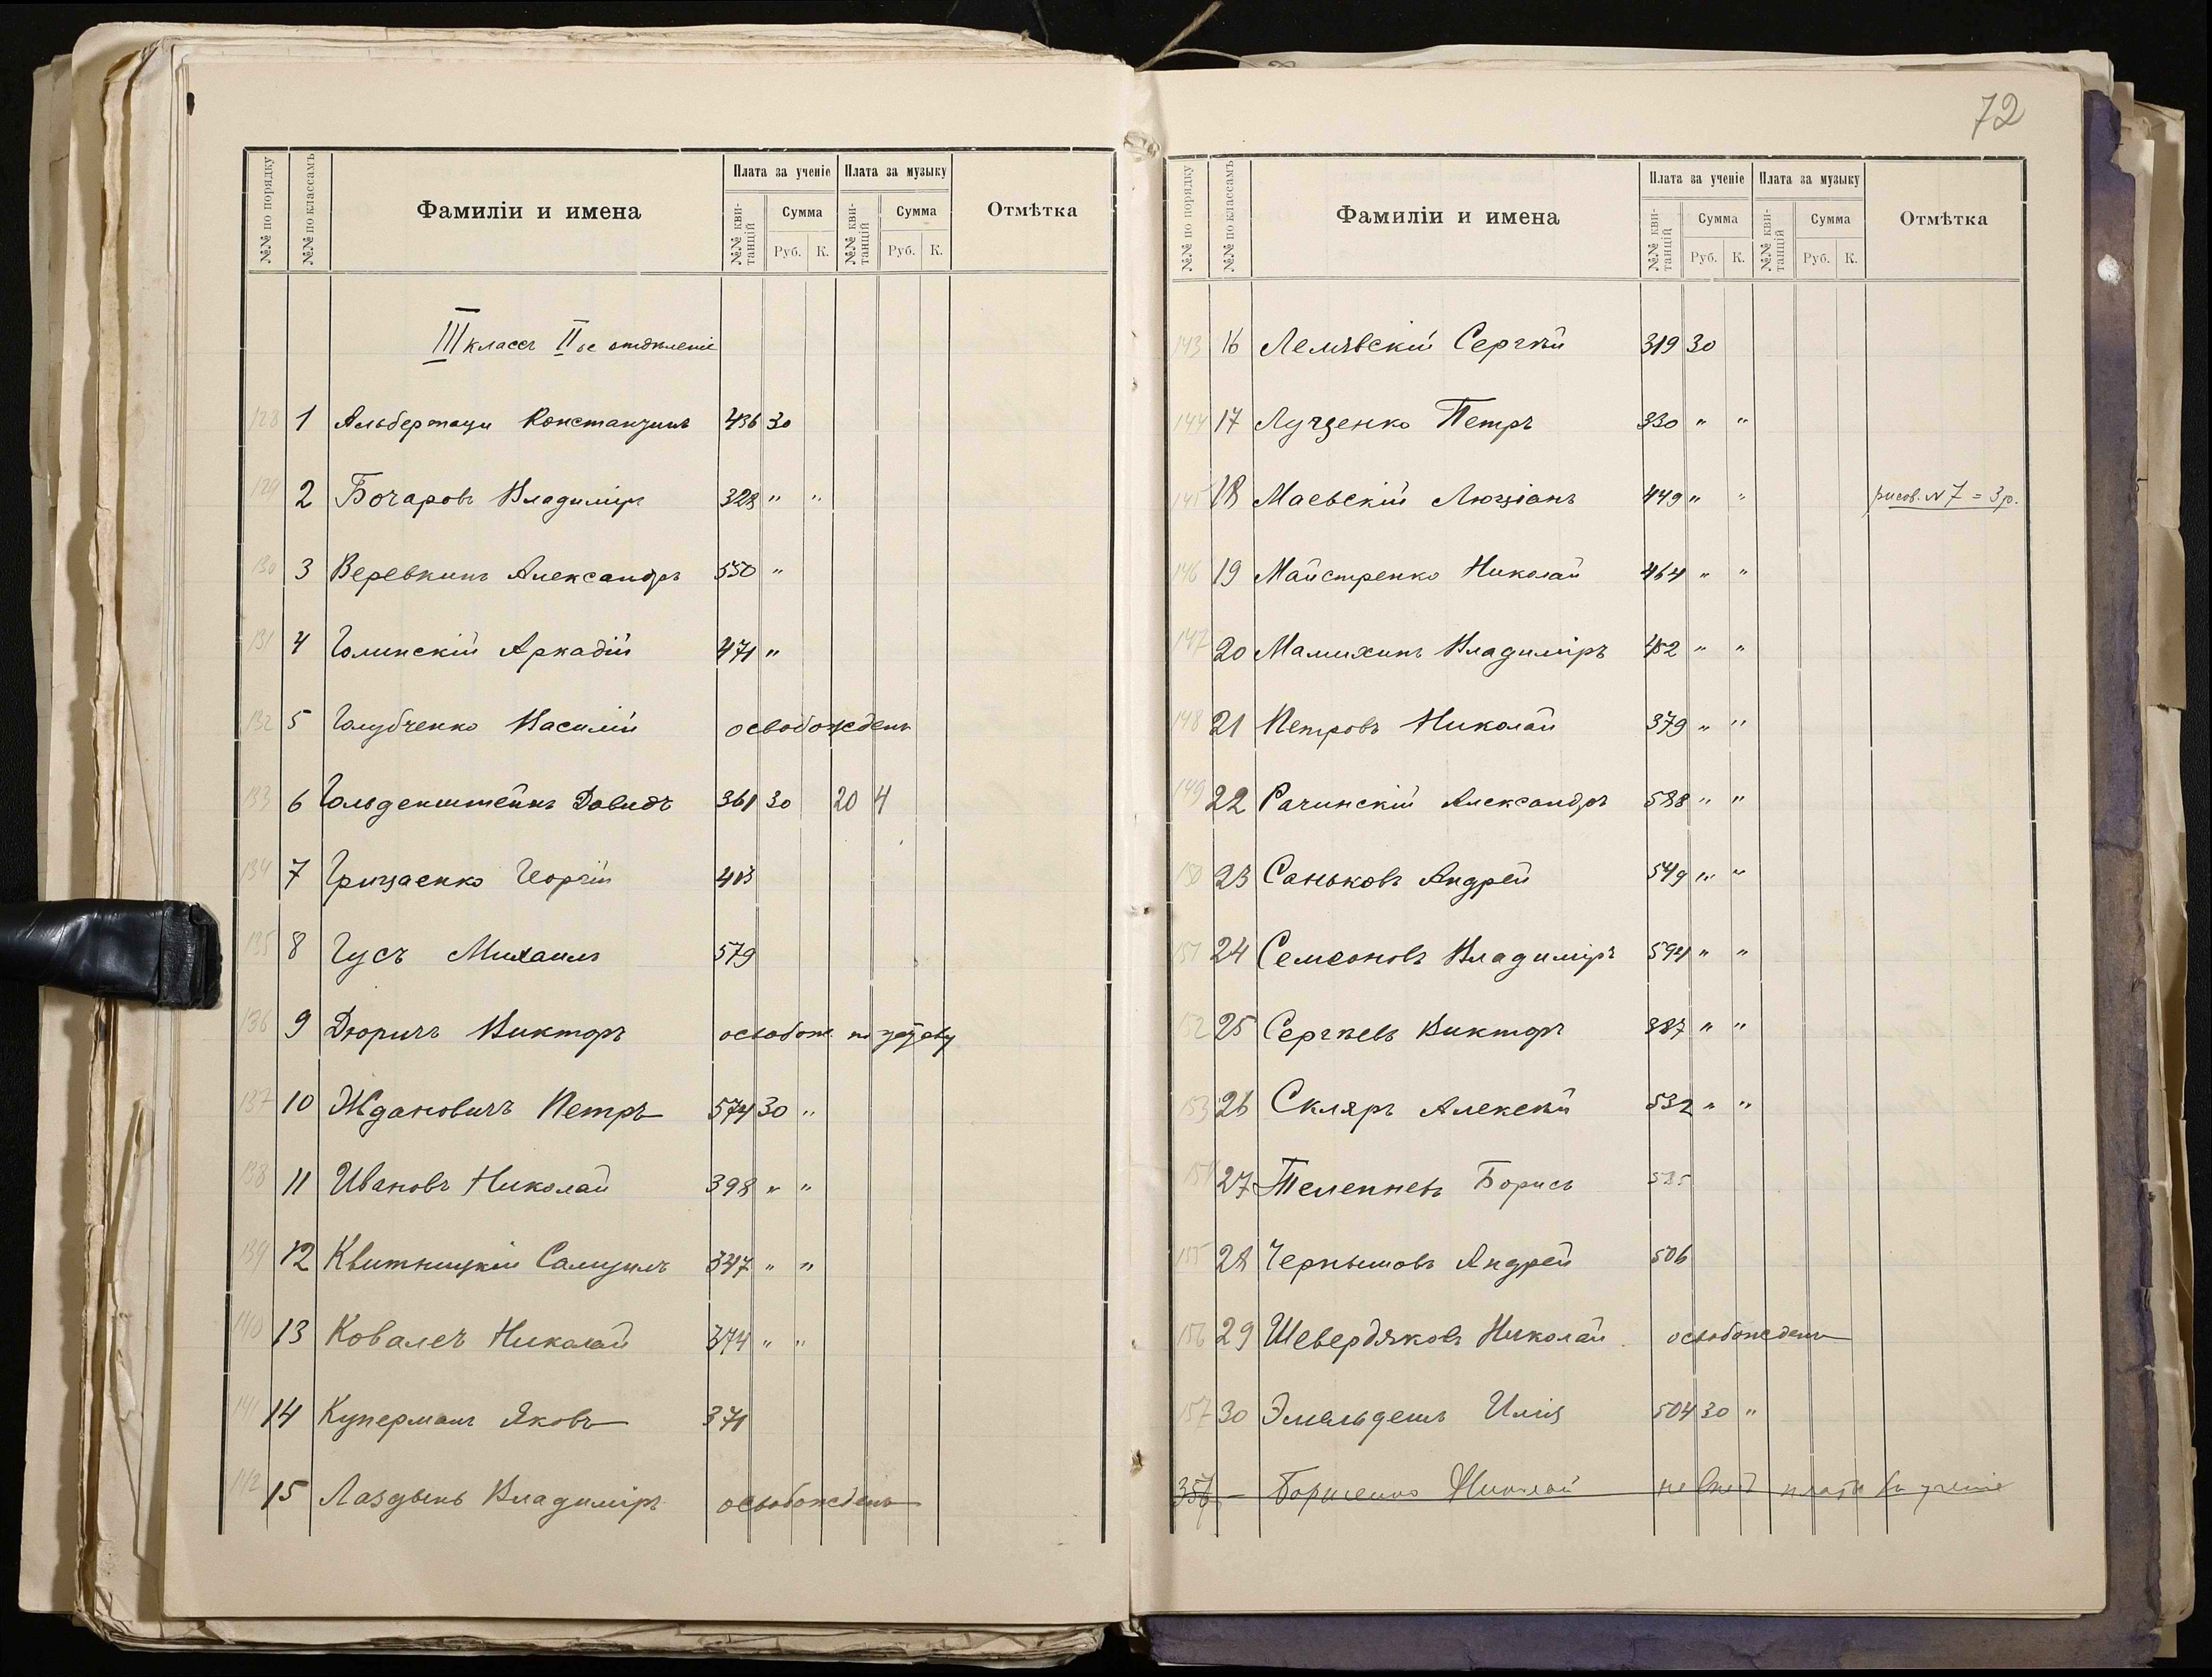 №№ по порядку №№ по классамъ Фамиліи и имена Плата за ученіе Плата за музыку Отмѣтка
№№ кви-танцій Сумма №№ кви-танцій Сумма
Руб. К. Руб. К.
III классъ II ое отдѣленіе
128 1 Альбертаци Константинъ 436 30
129 2 Бочаровъ Владиміръ 328 " "
130 3 Веревкинъ Александръ 550 "
131 4 Голинскій Аркадій 471 "
132 5 Голубченко Василій освобожденъ
133 6 Гольденштейнъ Давидъ 361 30 20 4
134 7 Грицаенко Георгій 403
135 8 Гусъ Михаилъ 579
136 9 Дюричъ Викторъ освобож. по
137 10 Ждановичъ Петръ 574 30 "
138 11 Ивановъ Николай 398 " "
139 12 Квитницкій Самуилъ 347 " "
140 13 Ковалевъ Николай 374 " "
141 14 Куперманъ Яковъ 371
142 15 Лаздынь Владиміръ освобожденъ
72
№№ по порядку №№ по классамъ Фамиліи и имена Плата за ученіе Плата за музыку Отмѣтка
№№ кви-танцій Сумма №№ кви-танцій Сумма
Руб. К. Руб. К.
143 16 Лемявскій Сергѣй 319 30
144 17 Лученко Петръ 330 " "
145 18 Маевскій Люціанъ 449 " " рисов. № 7 = 3 р.
146 19 Майстренко Николай 464 " "
147 20 Мамихинъ Владиміръ 452 " "
148 21 Петровъ Николай 379 " "
149 22 Рачинскій Александръ 588 " "
150 23 Саньковъ Андрей 549 " "
151 24 Семеоновъ Владиміръ 594 " "
152 25 Сергѣевъ Викторъ 387 " "
153 26 Скляръ Алексѣй 532 " "
154 27 Телепневъ Борисъ 585
155 28 Чернышовъ Андрей 506
156 29 Шевердяковъ Николай освобожденъ
157 30 Эмельдешъ Илія 504 30 "
356 — Борисенко Николай не внес платы за ученіе